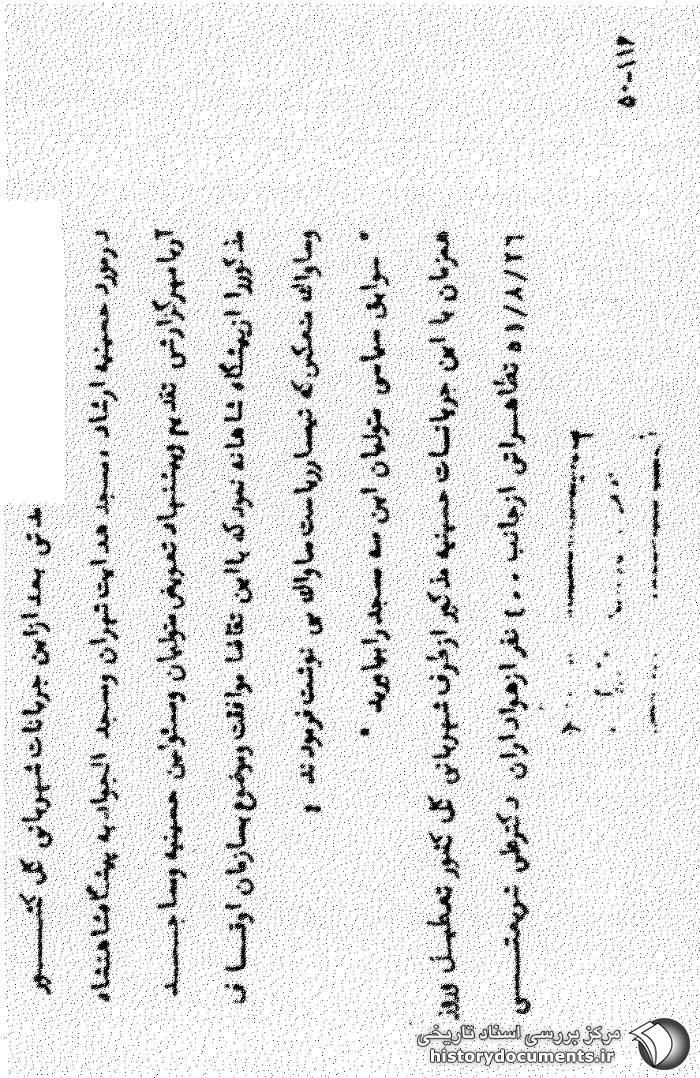 ۵۰-۱۱۲
مدتی بعد ازاین جریانات شهربانی کل کشـــور
درمورد حسینیه ارشاد ، مسجد هدایت تهران ومسجد الجواد به پیشگاه شاهنشاه
آریامهر گزارشی تقدیم وپیشنهاد تعویض متولیان ومسئولین حسینیه ومساجــــد
مذکوررا ازپیشگاه شاهانه نمود که بااین تقاضا موافقت وموضوع بسازمان اوقـــاف
وساواک منعکس که تیمسارریاست ساواک پی نوشت فرمودند :
" سوابق سیاسی متولیان این سه مسجد را بیاورید "
همزمان با این جریانــات حسینیه مذکور ازطرف شهربانی کل کشور تعطیـــل وروز
۵۱/۸/۲۶ تظاهـــراتی ازجانب ۱۰۰ نفر ازهواداران دکترعلی شریعتــــی
مرکز بررسی اسناد تاریخی
historydocuments.ir